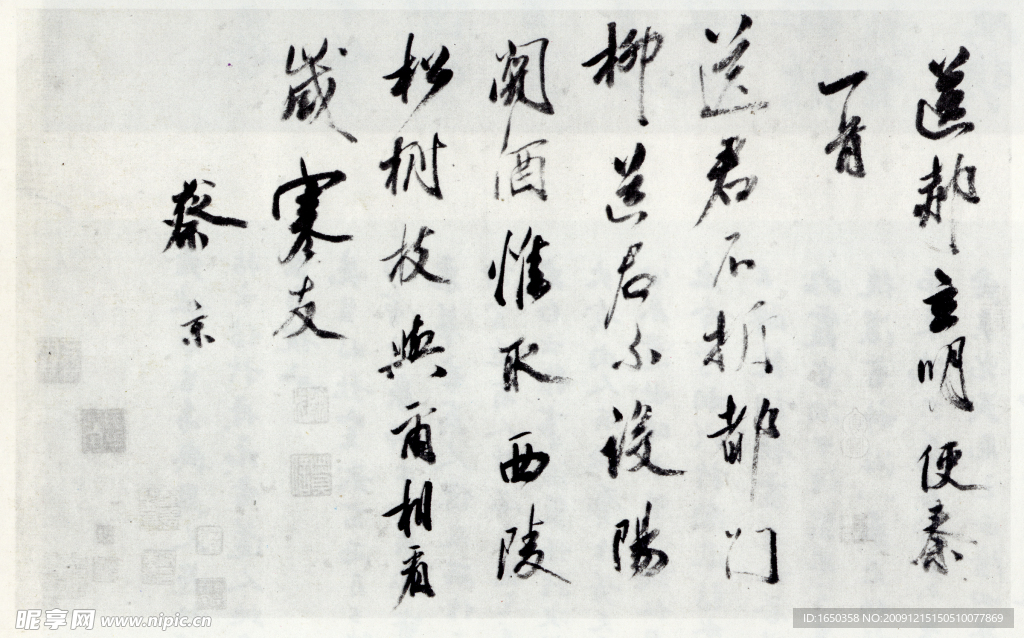 送郝玄明使秦
一首
送君不折都門
柳送君不設陽
関酒惟取西陵
松樹枝與爾相看
歲寒友
蔡京
昵享网 www.nipic.cn
ID:1650358 NO:20091215150510077869